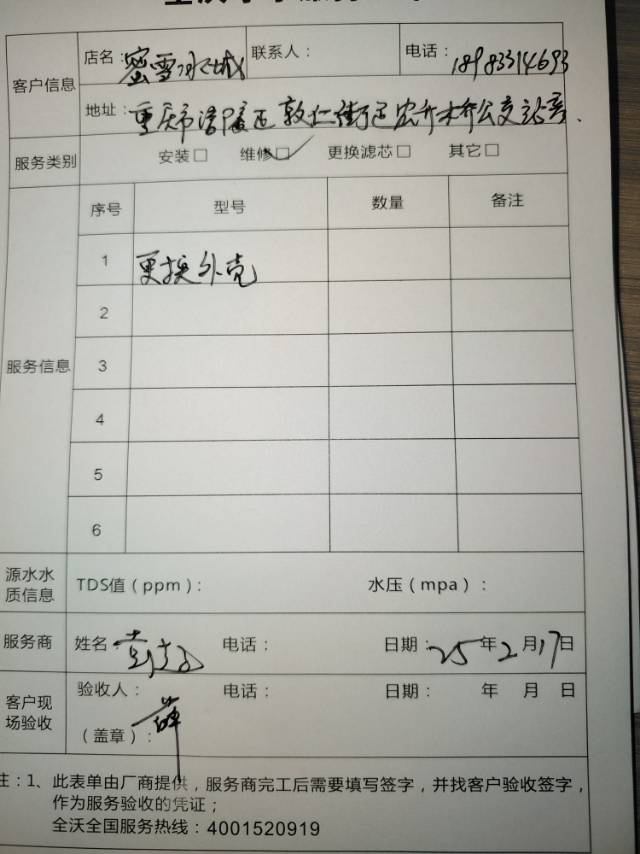 店名：蜜雪冰城 联系人： 电话：18983314693
客户信息
地址：重庆市涪陵区敦仁街道宏升大桥公交站旁
服务类别 安装□ 维修□✓ 更换滤芯□ 其它□
序号 型号 数量 备注
1 更换外壳
2
服务信息 3
4
5
6
源水水
质信息 TDS值（ppm）： 水压（mpa）：
服务商 姓名： 电话： 日期：25年2月17日
客户现
场验收
验收人：薛 电话： 日期： 年 月 日
（盖章）：
注：1、此表单由厂商提供，服务商完工后需要填写签字，并找客户验收签字，
作为服务验收的凭证；
全沃全国服务热线：4001520919